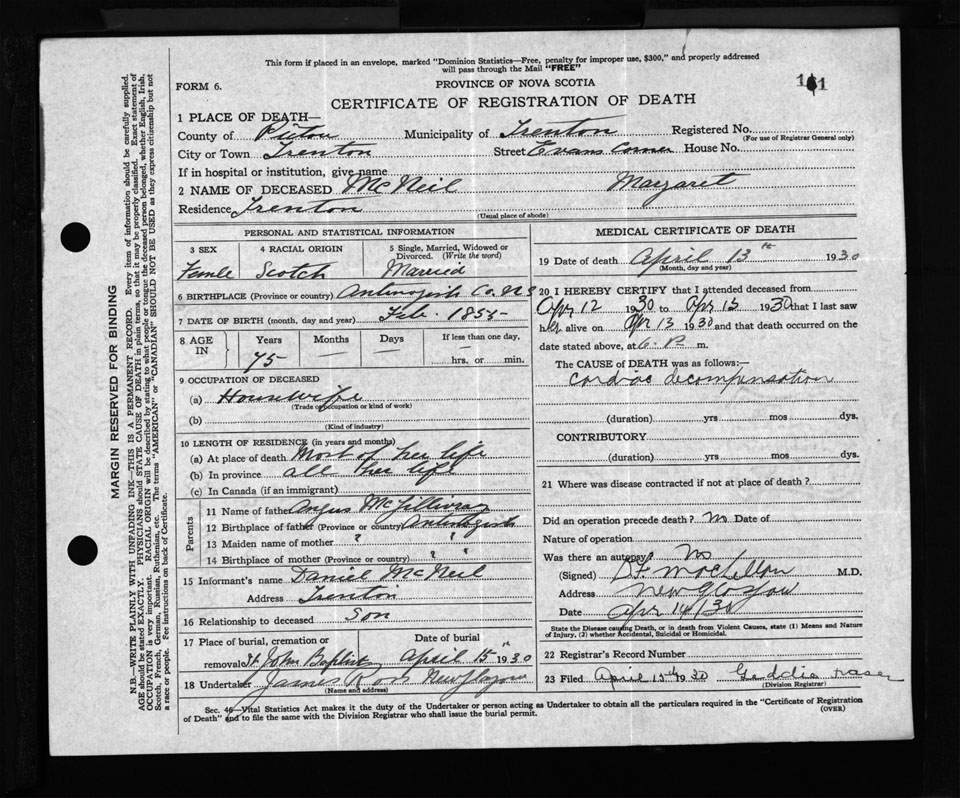 This form if placed in an envelope, marked "Dominion Statistics—Free, penalty for improper use, $300," and properly addressed
will pass through the Mail "FREE"
FORM 6.
PROVINCE OF NOVA SCOTIA
CERTIFICATE OF REGISTRATION OF DEATH
1 PLACE OF DEATH—
County of Pictou Municipality of Trenton Registered No.
(For use of Registrar General only)
City or Town Trenton Street Evans Corner House No.
If in hospital or institution, give name
2 NAME OF DECEASED McNeil Margaret
Residence Trenton
(Usual place of abode)
PERSONAL AND STATISTICAL INFORMATION
3 SEX 4 RACIAL ORIGIN 5 Single, Married, Widowed or Divorced. (Write the word)
Femle Scotch Married
6 BIRTHPLACE (Province or country) Antinogish Co. N S
7 DATE OF BIRTH (month, day and year) Feb. 1855
8 AGE IN Years Months Days If less than one day,
75 — hrs. or min.
9 OCCUPATION OF DECEASED
(a) Housewife
(Trade or occupation or kind of work)
(b)
(Kind of industry)
10 LENGTH OF RESIDENCE (in years and months)
(a) At place of death Most of her life
(b) In province all her life
(c) In Canada (if an immigrant)
Parents
11 Name of father Angus McGillivray
12 Birthplace of father (Province or country) Antinogish
13 Maiden name of mother ? ?
14 Birthplace of mother (Province or country) ? ?
15 Informant's name Daniel McNeil
Address Trenton
16 Relationship to deceased Son
17 Place of burial, cremation or removal Date of burial
St John Baptist April 15th 1930
18 Undertaker James Ross New Glasgow
(Name and address)
MEDICAL CERTIFICATE OF DEATH
19 Date of death April 13th 1930
(Month, day and year)
20 I HEREBY CERTIFY that I attended deceased from
Apr 12 1930 to Apr 13 1930 that I last saw
her alive on Apr 13 1930 and that death occurred on the
date stated above, at 6. P. m.
The CAUSE OF DEATH was as follows:—
Cardiac decompensation
(duration) yrs mos dys.
CONTRIBUTORY
(duration) yrs mos dys.
21 Where was disease contracted if not at place of death?
Did an operation precede death? No Date of
Nature of operation
Was there an autopsy? No
(Signed) MacLellan M.D.
Address New Glasgow
Date Apr 14/30
State the Disease causing Death, or in death from Violent Causes, state (1) Means and Nature
of Injury, (2) whether Accidental, Suicidal or Homicidal.
22 Registrar's Record Number
23 Filed April 15th 1930 Geddie Fraser
(Division Registrar)
Sec. 46—Vital Statistics Act makes it the duty of the Undertaker or person acting as Undertaker to obtain all the particulars required in the "Certificate of Registration
of Death" and to file the same with the Division Registrar who shall issue the burial permit. (OVER)
MARGIN RESERVED FOR BINDING
N.B.—WRITE PLAINLY WITH UNFADING INK—THIS IS A PERMANENT RECORD. Every item of information should be carefully supplied.
AGE should be stated EXACTLY. PHYSICIANS should STATE CAUSE OF DEATH in plain terms, so that it may be properly classified. Exact statement of
OCCUPATION is very important. RACIAL ORIGIN will be described by stating to what people or tongue the deceased person belonged, whether English, Irish,
Scotch, French, German, Russian, Ruthenian, etc. The terms "AMERICAN" or "CANADIAN" SHOULD NOT BE USED as they express citizenship but not
a race or people. See instructions on back of Certificate.